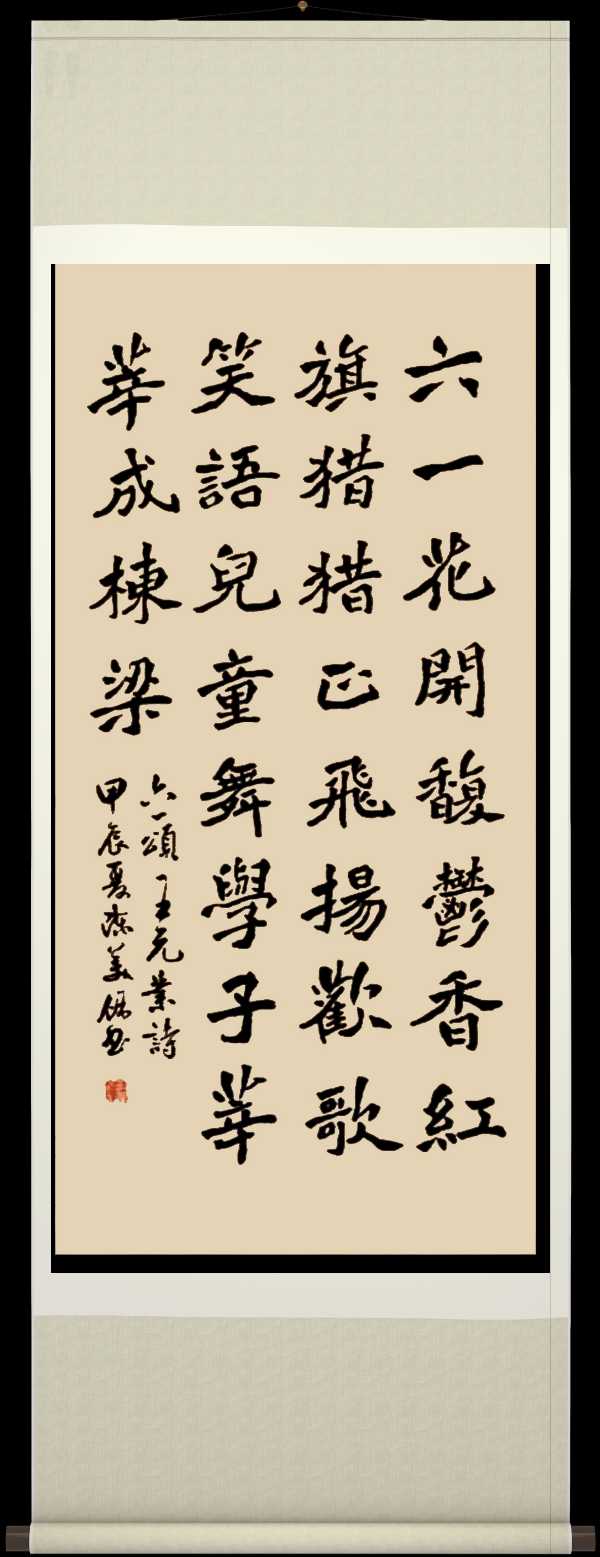 六一花開馥鬱香紅
旗猎猎正飛揚歡歌
笑語兒童舞學子莘
莘成棟梁
六一頌 王元業詩
甲辰夏 美 书